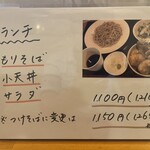 ランチ
もりそば
小天丼
サラダ
1100円(121
つけそばに変更は
1150円(126